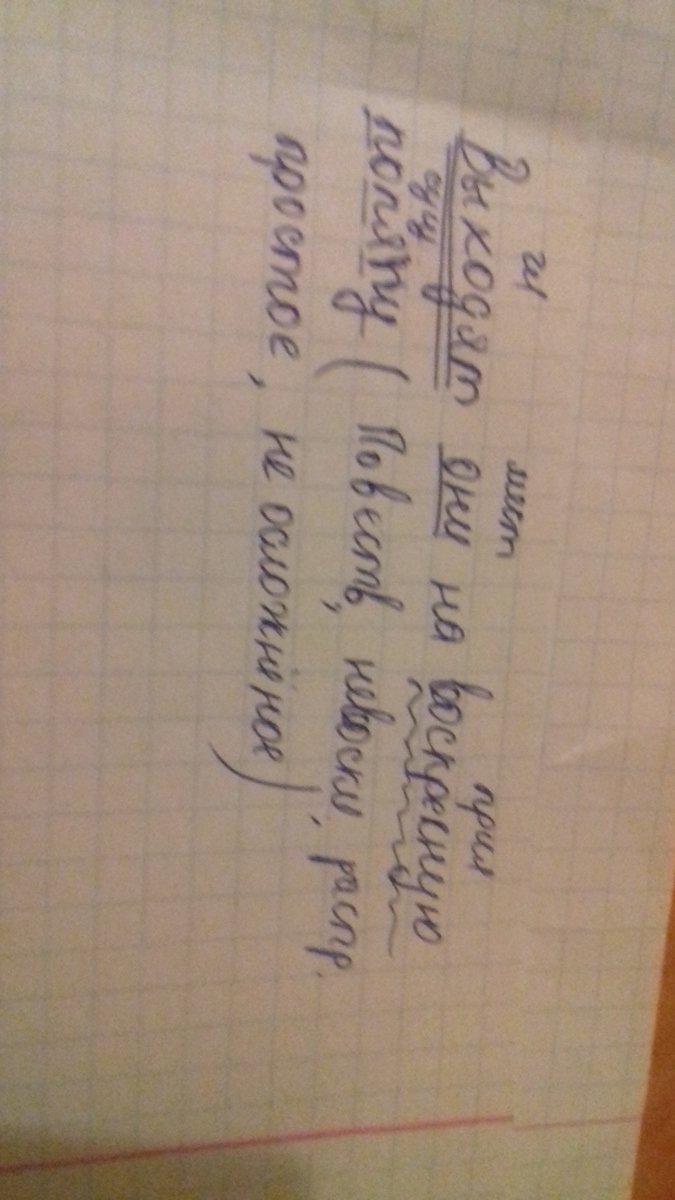 гл мест прил
Выходят они на воскресную
сущ
поляну ( Повеств, невоскл, распр.
простое, не осложнёное)